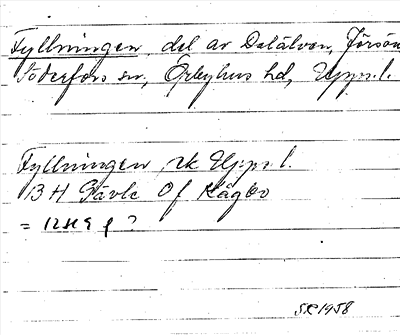 Fyllningen, del av Dalälven,
Söderfors sn, Örbyhus hd, Upps. l.
Fyllningen, rk Upps. l.
13 H Gävle 0 f Hågbo
= 12H9f ?
SR 1958